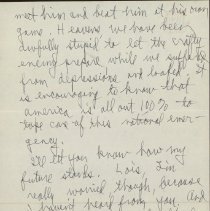 meet him and beat him at his own
game. Heavens we have been
awfully stupid to let the crafty
enemy prepare while we suffered
from depressions and loafed. it
is encouraging to know that
america is all out 100% to
take care of this national emer-
gency.
I'll let you know how my
future stands. Lois, I'm
really worried though, because
I haven't heard from you. And